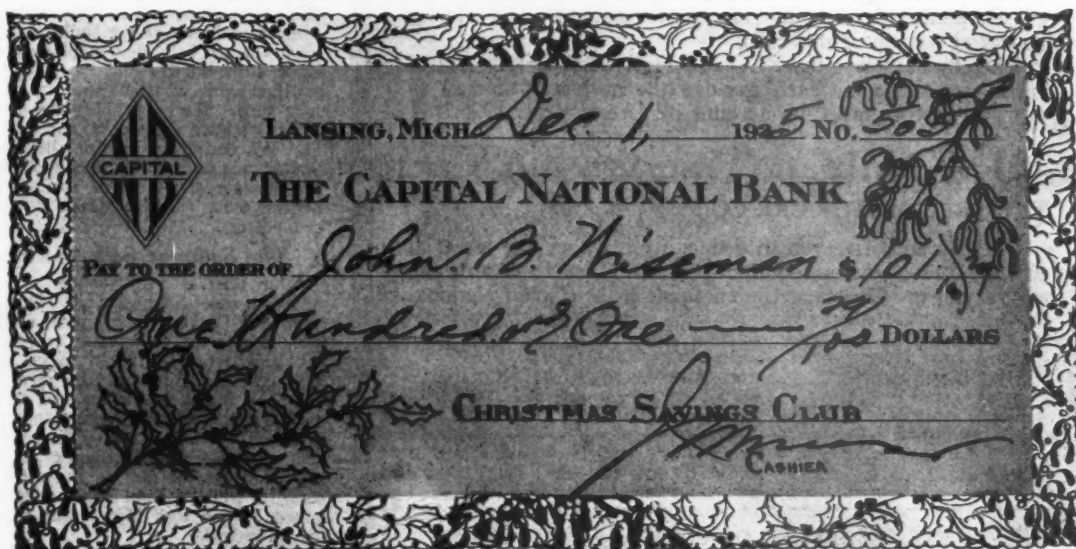 LANSING, MICH. Dec. 1, 1925 No. 505
CAPITAL
NB
THE CAPITAL NATIONAL BANK
PAY TO THE ORDER OF John. B. Wiseman $ 101
One Hundred & One — /100 DOLLARS
CHRISTMAS SAVINGS CLUB
CASHIER